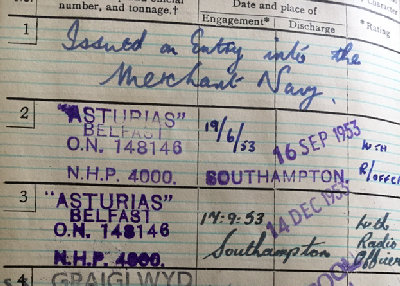 number, and tonnage.†
Date and place of
Engagement* Discharge
*Rating
1
Issued on Entry into the
Merchant Navy.
2
"ASTURIAS"
BELFAST
O.N. 148146
N.H.P. 4000.
19/6/53
SOUTHAMPTON.
16 SEP 1953
3
"ASTURIAS"
BELFAST
O.N. 148146
N.H.P. 4000.
17-9-53
Southampton
14 DEC 1953
Radio
Officer
4
GRAIGLWYD